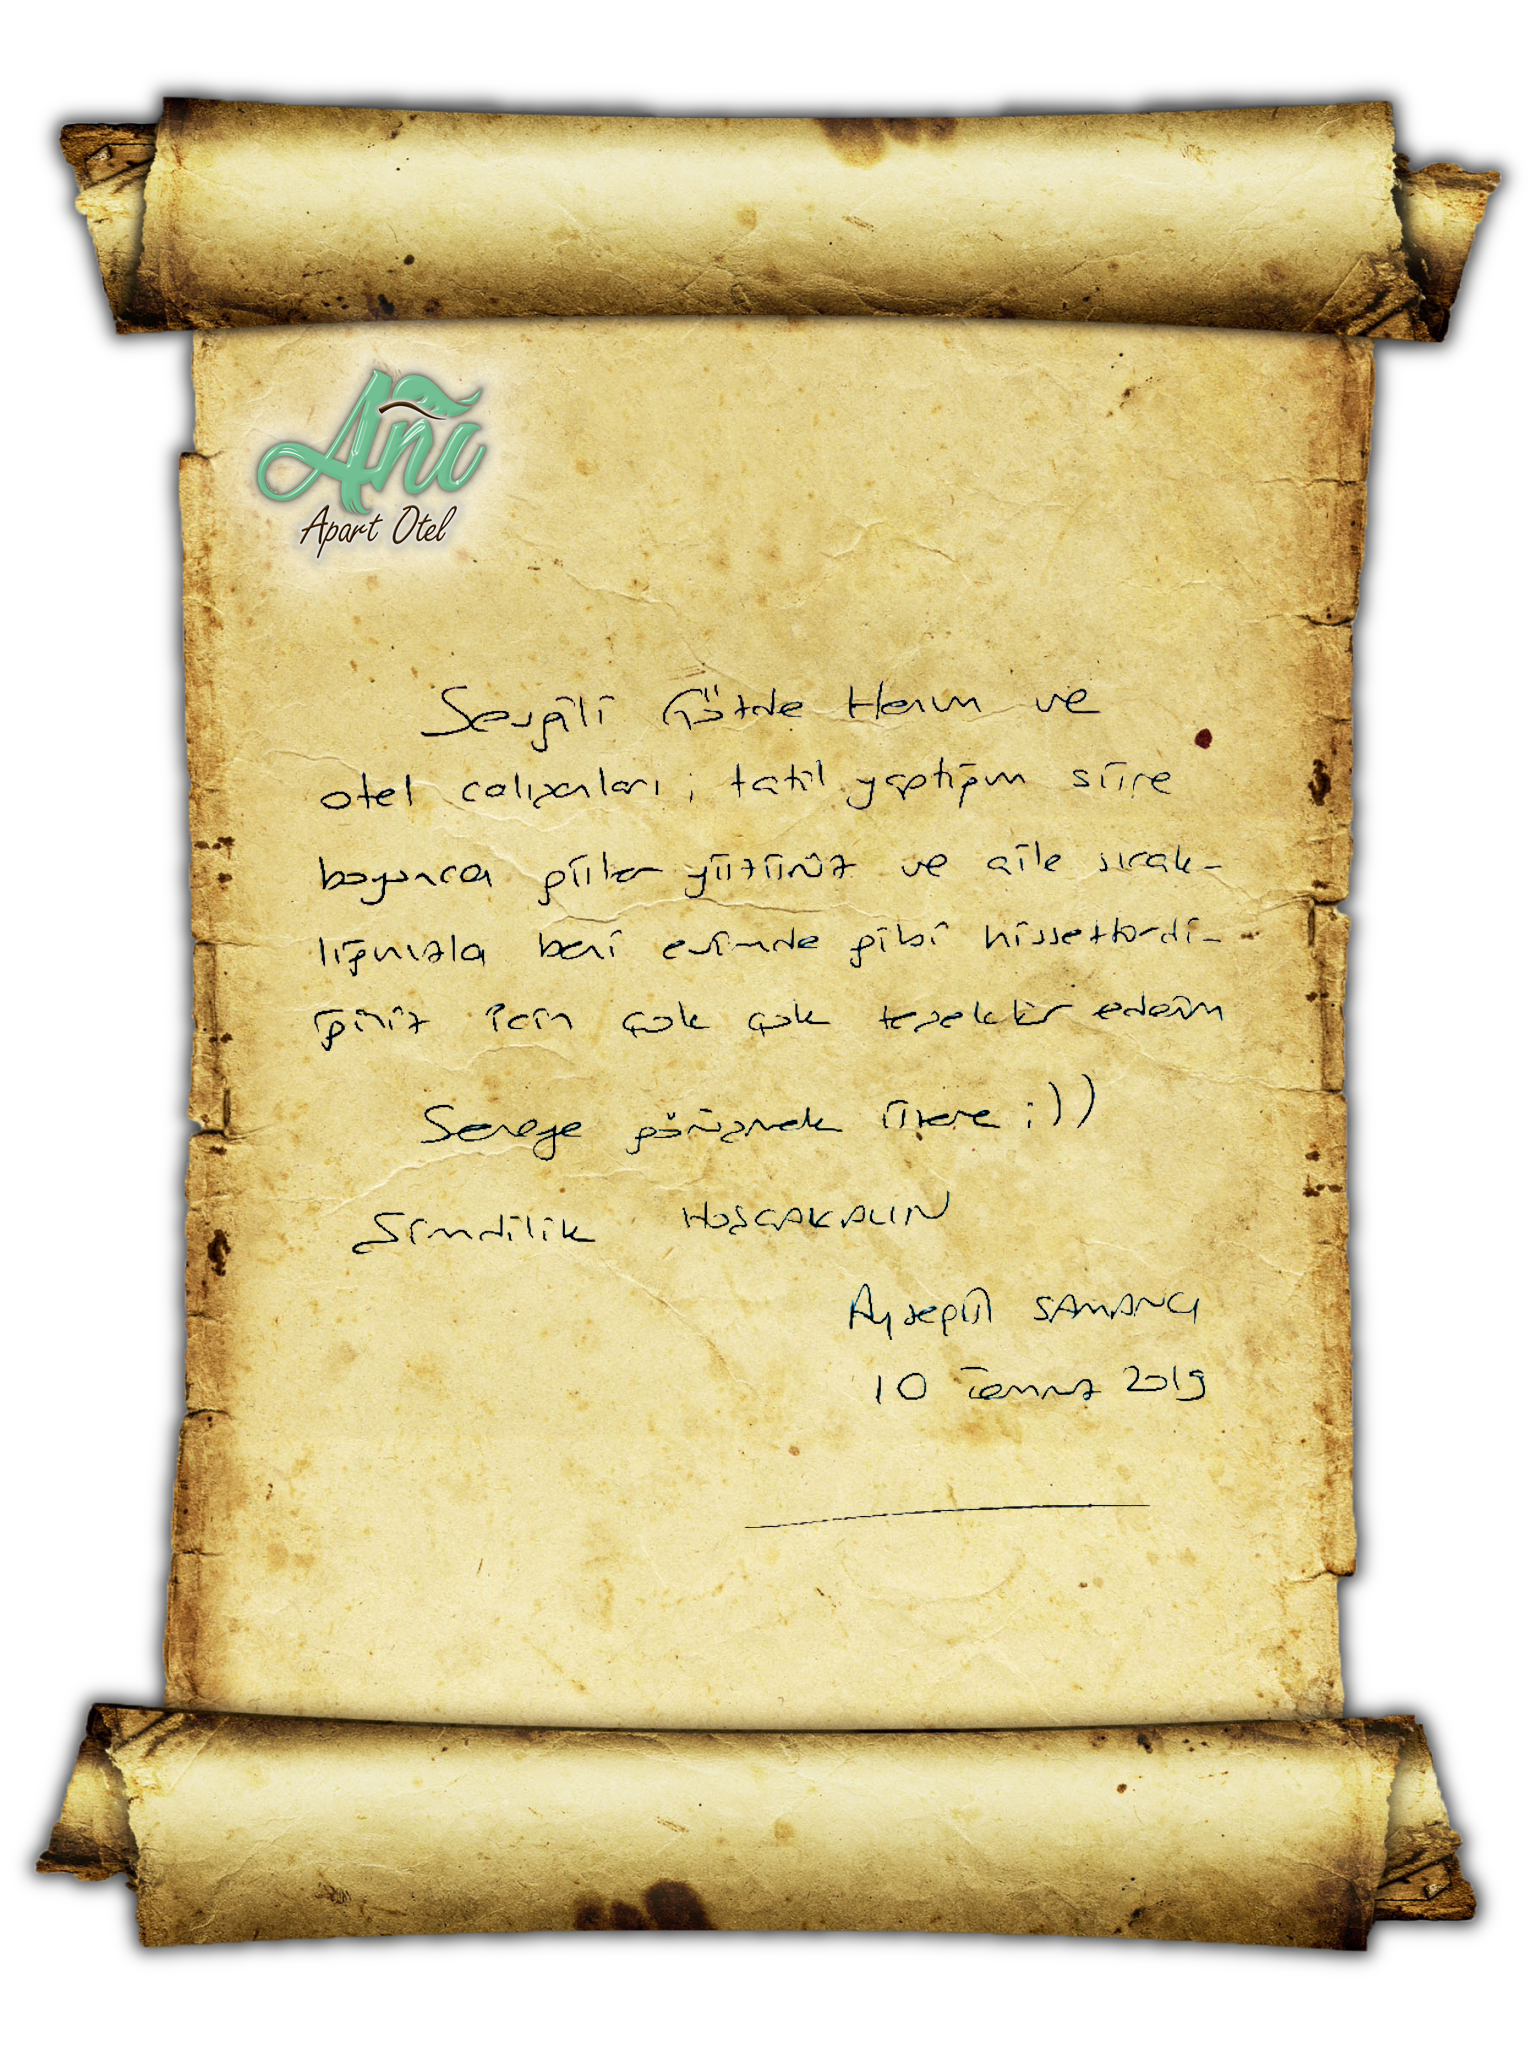 Anı
Apart Otel
Sevgili Gözde Hanım ve
otel çalışanları; tatil yaptığım süre
boyunca güler yüzünüz ve aile sıcak-
lığınızla beni evimde gibi hissettirdi-
ğiniz için çok çok teşekkür ederim
Seneye görüşmek üzere ;))
Şimdilik HOŞÇAKALIN
Ayşegül SAMANCI
10 Temmuz 2019